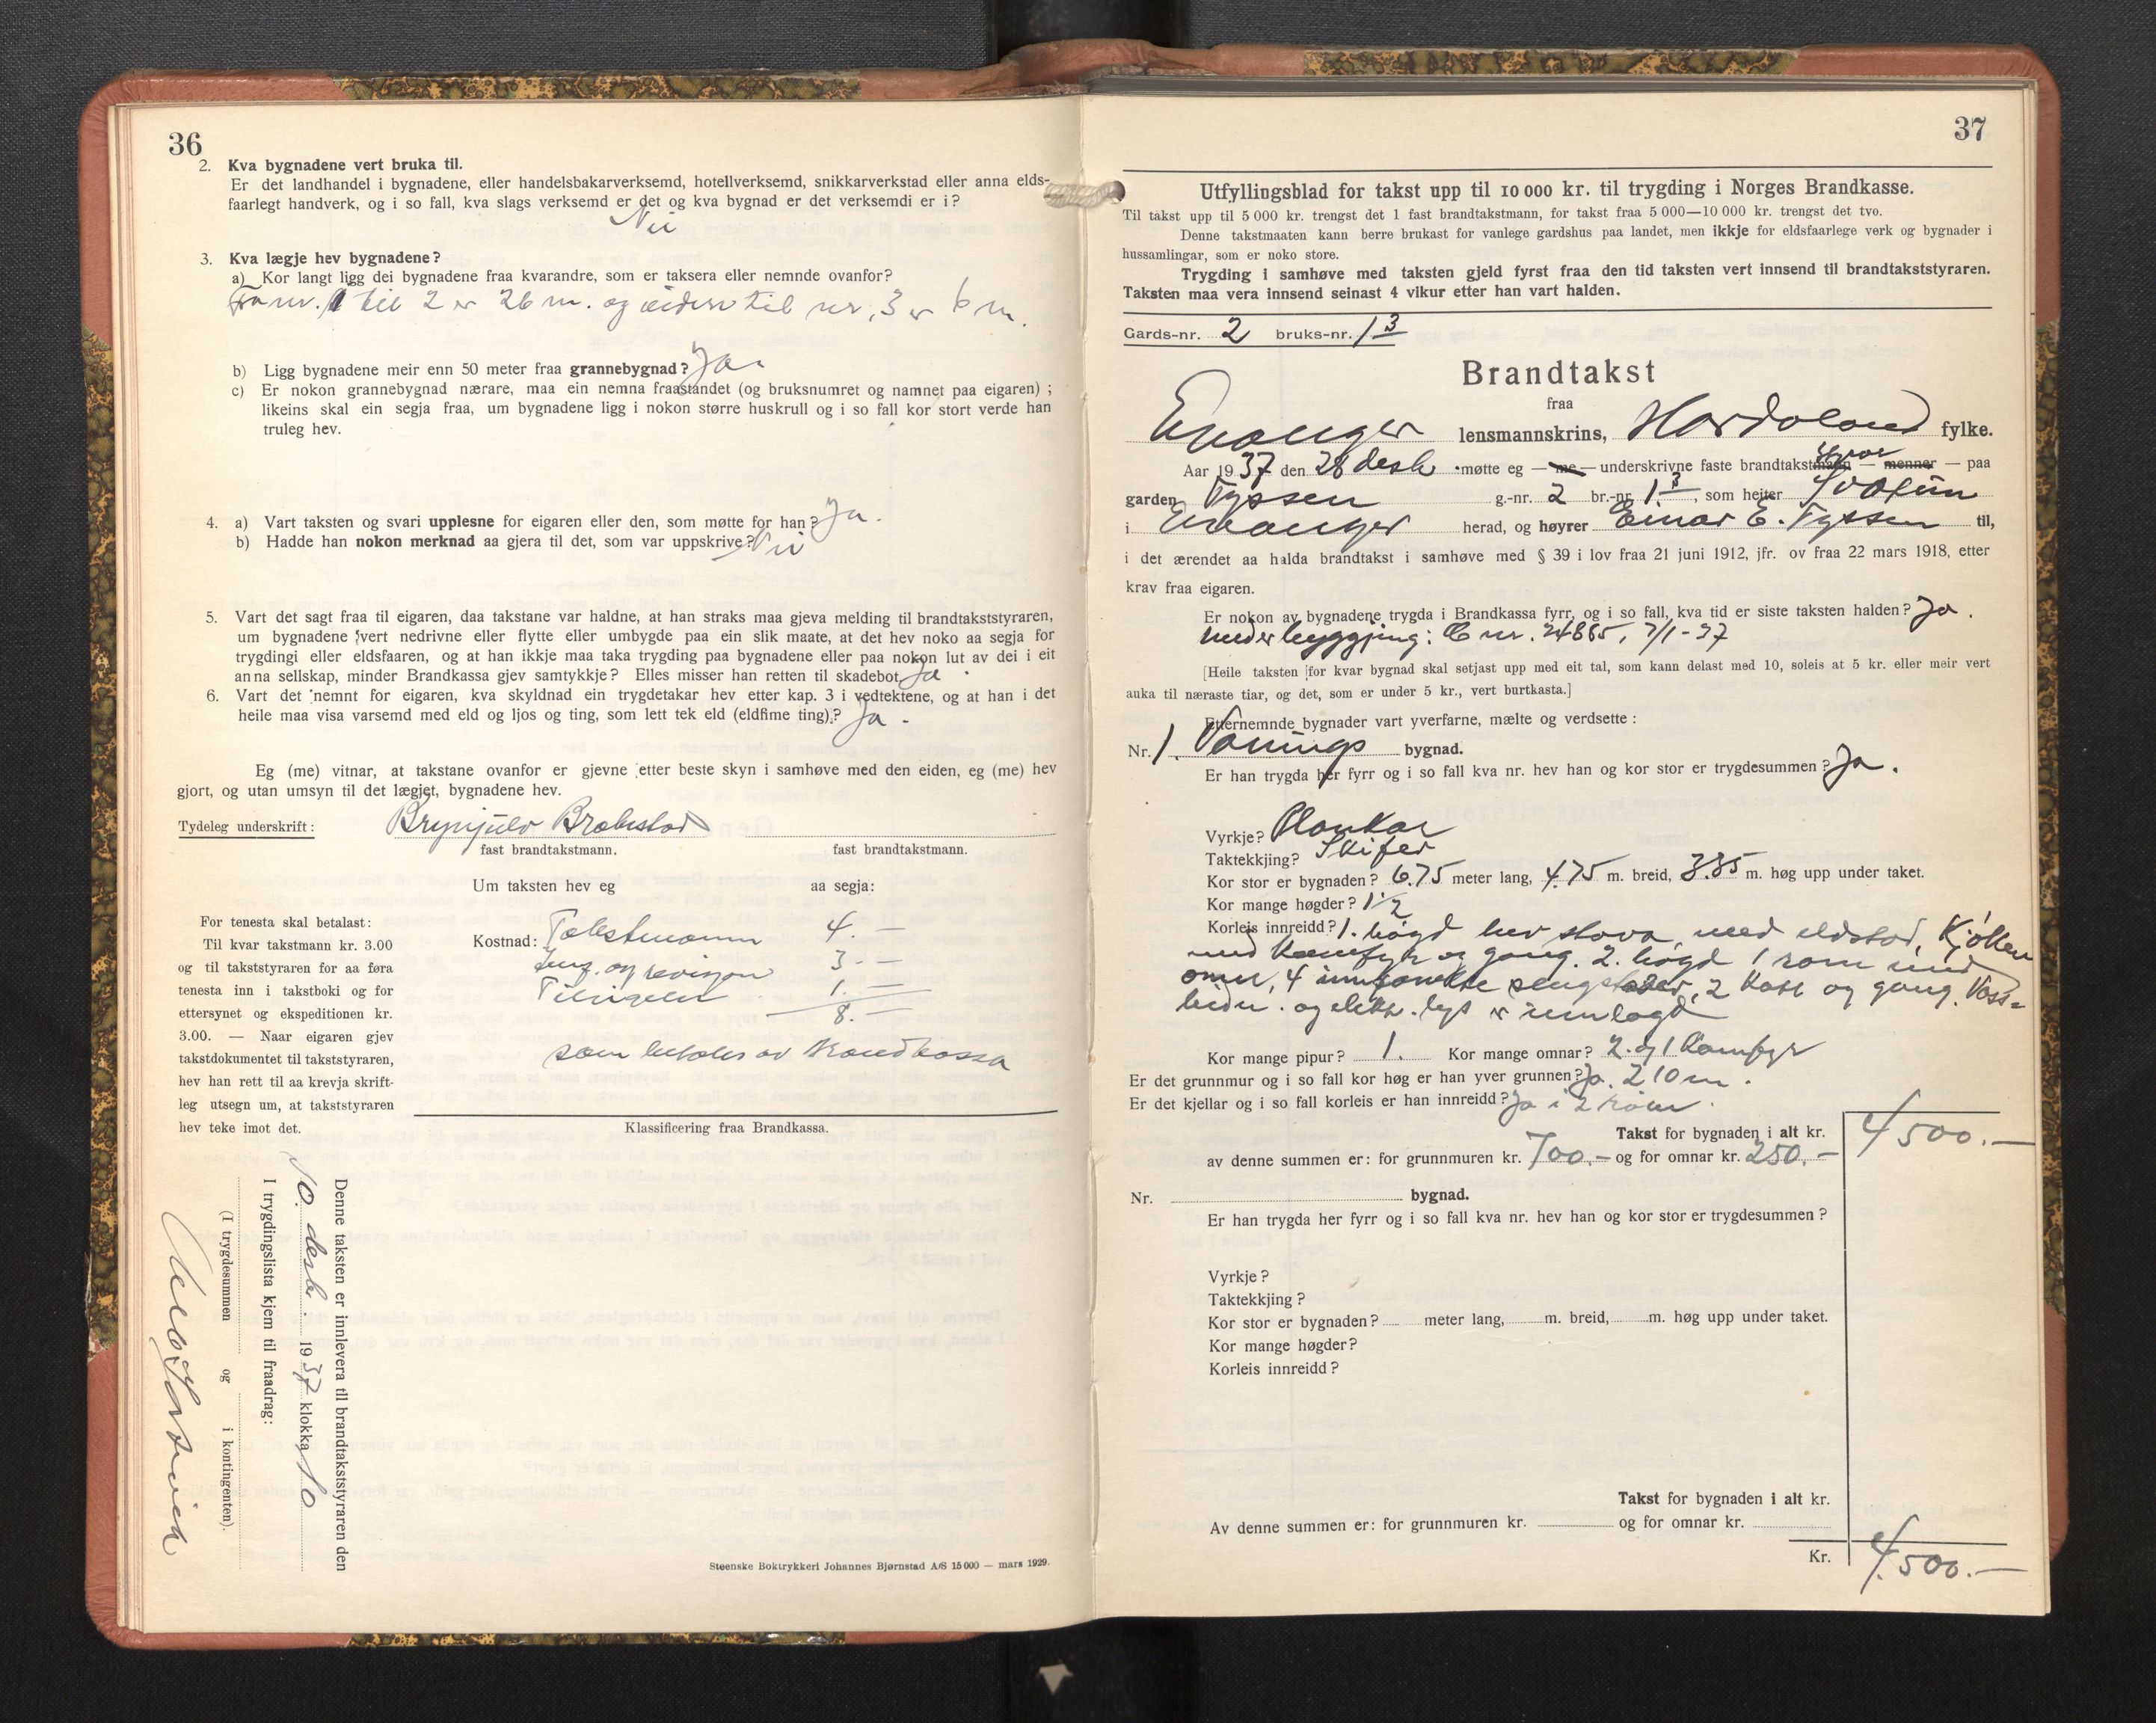 36
2. Kva bygnadene vert bruka til.
Er det landhandel i bygnadene, eller handelsbakarverksemd, hotellverksemd, snikkarverkstad eller anna elds-
faarlegt handverk, og i so fall, kva slags verksemd er det og kva bygnad er det verksemdi er i?
Nei
3. Kva lægje hev bygnadene?
a) Kor langt ligg dei bygnadene fraa kvarandre, som er taksera eller nemnde ovanfor?
Fra nr. 1 til 2 er 26 m. og vidare til nr. 3 er 6 m.
b) Ligg bygnadene meir enn 50 meter fraa grannebygnad? Ja.
c) Er nokon grannebygnad nærare, maa ein nemna fraastandet (og bruksnumret og namnet paa eigaren);
likeins skal ein segja fraa, um bygnadene ligg i nokon større huskrull og i so fall kor stort verde han
truleg hev.
4. a) Vart taksten og svari upplesne for eigaren eller den, som møtte for han? Ja.
b) Hadde han nokon merknad aa gjera til det, som var uppskrive? Nei
5. Vart det sagt fraa til eigaren, daa takstane var haldne, at han straks maa gjeva melding til brandtakststyraren,
um bygnadene vert nedrivne eller flytte eller umbygde paa ein slik maate, at det hev noko aa segja for
trygdingi eller eldsfaaren, og at han ikkje maa taka trygding paa bygnadene eller paa nokon lut av dei i eit
anna sellskap, minder Brandkassa gjev samtykkje? Elles misser han retten til skadebot. Ja.
6. Vart det nemnt for eigaren, kva skyldnad ein trygdetakar hev etter kap. 3 i vedtektene, og at han i det
heile maa visa varsemd med eld og ljos og ting, som lett tek eld (eldfime ting)? Ja.
Eg (me) vitnar, at takstane ovanfor er gjevne etter beste skyn i samhøve med den eiden, eg (me) hev
gjort, og utan umsyn til det lægjet, bygnadene hev.
Tydeleg underskrift: Brynjulv Brækstad
fast brandtakstmann. fast brandtakstmann.
Um taksten hev eg aa segja:
For tenesta skal betalast:
Til kvar takstmann kr. 3.00
og til takststyraren for aa føra
tenesta inn i takstboki og for
ettersynet og ekspeditionen kr.
3.00. — Naar eigaren gjev
takstdokumentet til takststyraren,
hev han rett til aa krevja skrift-
leg utsegn um, at takststyraren
hev teke imot det.
Kostnad: Takstmann 4. —
og revisjon 3. —
1. —
8. —
som betales av Brandkassa
Klassificering fraa Brandkassa.
Denne taksten er innlevera til brandtakststyraren den
10. desbr. 1937 klokka 10
I trygdingslista kjem til fraadrag:
(I trygdesummen og i kontingenten).
Steenske Boktrykkeri Johannes Bjørnstad A/S 15 000 — mars 1929.
37
Utfyllingsblad for takst upp til 10 000 kr. til trygding i Norges Brandkasse.
Til takst upp til 5 000 kr. trengst det 1 fast brandtakstmann, for takst fraa 5 000—10 000 kr. trengst det tvo.
Denne takstmaaten kann berre brukast for vanlege gardshus paa landet, men ikkje for eldsfaarlege verk og bygnader i
hussamlingar, som er noko store.
Trygding i samhøve med taksten gjeld fyrst fraa den tid taksten vert innsend til brandtakststyraren.
Taksten maa vera innsend seinast 4 vikur etter han vart halden.
Gards-nr. 2 bruks-nr. 13
Brandtakst
fraa
Evanger lensmannskrins, Hordaland fylke.
Aar 1937 den 28 desb. møtte eg — me — underskrivne faste brandtakstmann — menner — paa
garden Fyssen g.-nr. 2 br.-nr. 13, som heiter
i Evanger herad, og høyrer Einar E. Fyssen til,
i det ærendet aa halda brandtakst i samhøve med § 39 i lov fraa 21 juni 1912, jfr. ov fraa 22 mars 1918, etter
krav fraa eigaren.
Er nokon av bygnadene trygda i Brandkassa fyrr, og i so fall, kva tid er siste taksten halden? Ja.
under byggjing: nr. 24885, 7/1-37
[Heile taksten for kvar bygnad skal setjast upp med eit tal, som kann delast med 10, soleis at 5 kr. eller meir vert
auka til næraste tiar, og det, som er under 5 kr., vert burtkasta.]
Etternemnde bygnader vart yverfarne, mælte og verdsette:
Nr. 1. Vånings bygnad.
Er han trygda her fyrr og i so fall kva nr. hev han og kor stor er trygdesummen? Ja.
Vyrkje? Plankar
Taktekkjing? Skifer
Kor stor er bygnaden? 6.75 meter lang, 4.75 m. breid, 3.85 m. høg upp under taket.
Kor mange høgder? 1 1/2
Korleis innreidd? 1. høgd hev stova med eldstad, Kjøken
med Kamfyr og gang. 2. høgd 1 rom med
omn, 4 sengstader, 2 Kott og gang. Vass-
leidn. og elektr. lys er innlagd
Kor mange pipur? 1. Kor mange omnar? 2 og 1 Kamfyr
Er det grunnmur og i so fall kor høg er han yver grunnen? Ja. 2 10 m.
Er det kjellar og i so fall korleis er han innreidd? Ja i 2 rom.
Takst for bygnaden i alt kr. 4500.—
av denne summen er: for grunnmuren kr. 700.— og for omnar kr. 250.—
Nr. bygnad.
Er han trygda her fyrr og i so fall kva nr. hev han og kor stor er trygdesummen?
Vyrkje?
Taktekkjing?
Kor stor er bygnaden? meter lang, m. breid, m. høg upp under taket.
Kor mange høgder?
Korleis innreidd?
Takst for bygnaden i alt kr.
Av denne summen er: for grunnmuren kr. og for omnar kr.
Kr. 4.500.—